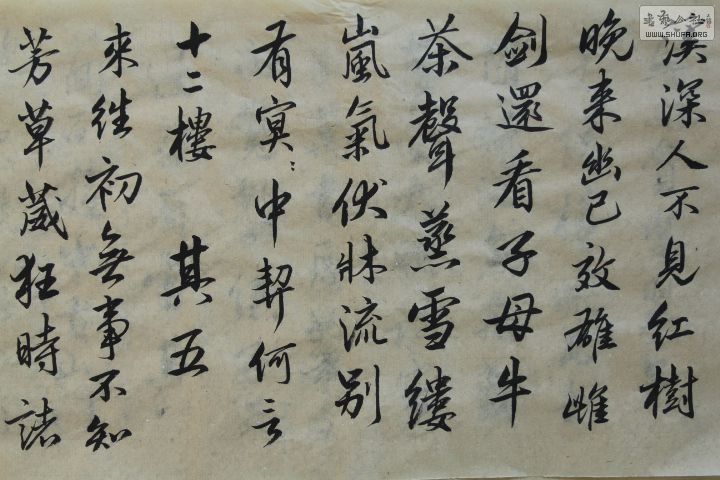 溪深人不見紅樹
晚来幽已效雄雌
劍還看子母牛
茶聲蒸雪縷
嵐氣伏牀流别
有冥〻中契何言
十二樓 其五
來往初無事不知
芳草葳狂時諸
書法公社
WWW.SHUFA.ORG